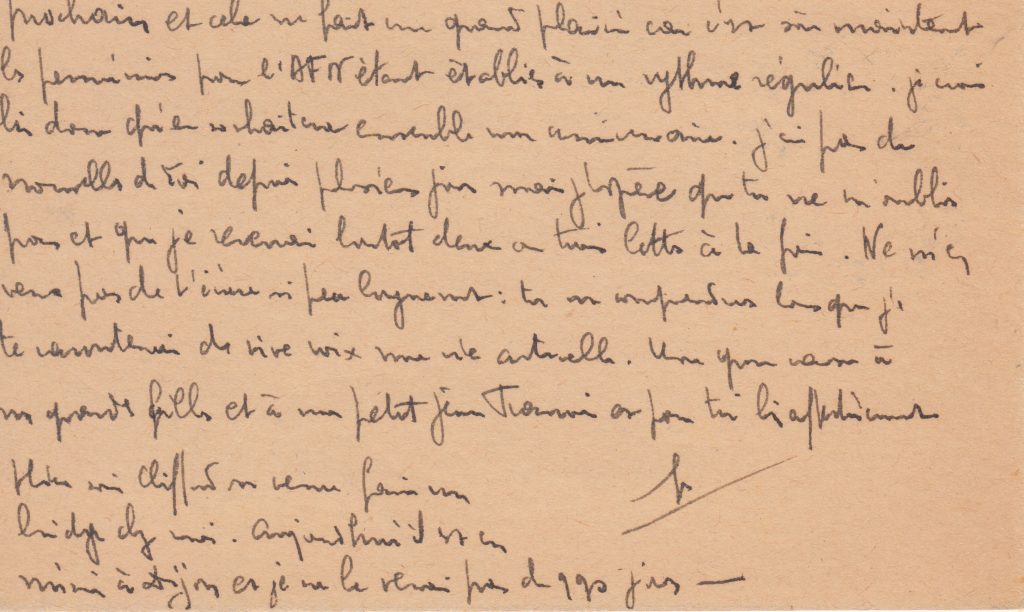 prochain et cela me fait un grand plaisir car c'est sûr maintenant
les permissions pour l'AFN étant établies à un rythme régulier. je crois
bien donc qu'en souhaitera ensemble mon anniversaire. J'ai pas de
nouvelles de toi depuis plusieurs jours mais j'espère que tu ne m'oublies
pas et que je recevrai bientôt deux ou trois lettres à la fois. Ne m'en
veux pas de t'écrire si peu longuement : tu me comprendras lorsque je
te raconterai de vive voix ma vie actuelle. Une caresse à
nos grandes filles et à mon petit Jean et pour toi bien affectueusement
Hier soir Clifford est venu faire un
bridge chez moi. Aujourd'hui il est en
mission à Dijon et je ne le verrai pas de qqs jours —